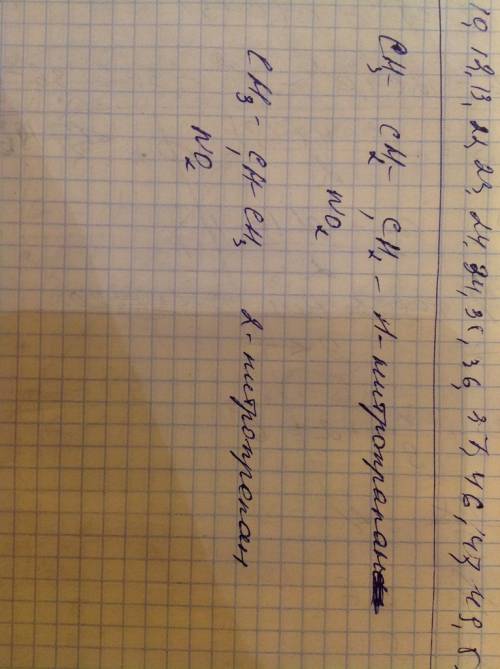 19, 12, 13, 21, 23, 24, 24, 35, 36, 37, 46, 47, 48,
CH3 - CH2 - CH2 - 1-нитропрапан
NO2
CH3 - CH - CH3 2-нитропрепан
NO2